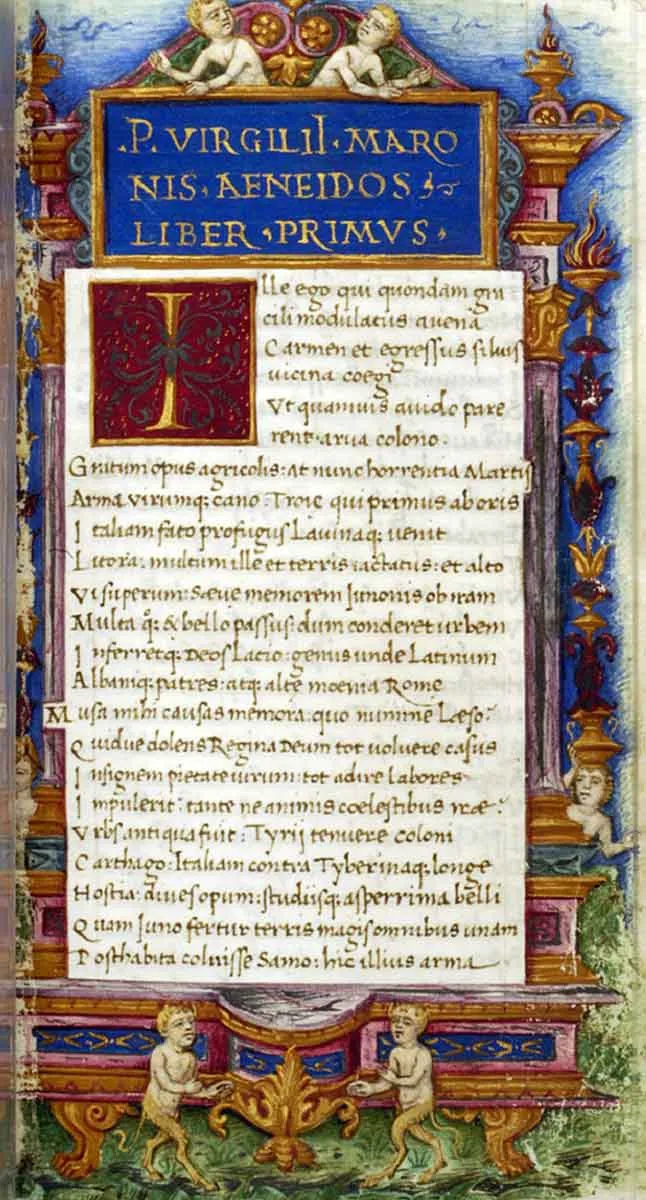 .P. VIRGILII. MARO
NIS. AENEIDOS
LIBER. PRIMVS.
Ille ego qui quondam gra
cili modulatus avena
Carmen et egressus siluis
vicina coegi
Vt quamuis auido pare
rent arva colono.
Gratum opus agricolis: at nunc horrentia Martis
Arma virumq; cano: Troie qui primus ab oris
Italiam fato profugus Lauinaq; venit
Litora: multum ille et terris iactatus: et alto
Vi superum: Sæue memorem Junonis ob iram
Multa qȝ & bello passus: dum conderet urbem
Inferretq; Deos Latio: genus unde Latinum
Albaniq; patres: atq; alte moenia Rome
Musa mihi causas memora: quo numine Læso:
Quidue dolens Regina Deum tot voluere casus
Insignem pietate uirum: tot adire Labores
Impulerit: tante ne animis coelestibus iræ:
Vrbs antiqua fuit: Tyrij tenuere coloni
Carthago: Italiam contra Tyberinaq; longe
Hostia: diues opum: studiisq; asperrima belli
Quam Juno fertur terris magis omnibus unam
Posthabita coluisse Samo: hic illius arma